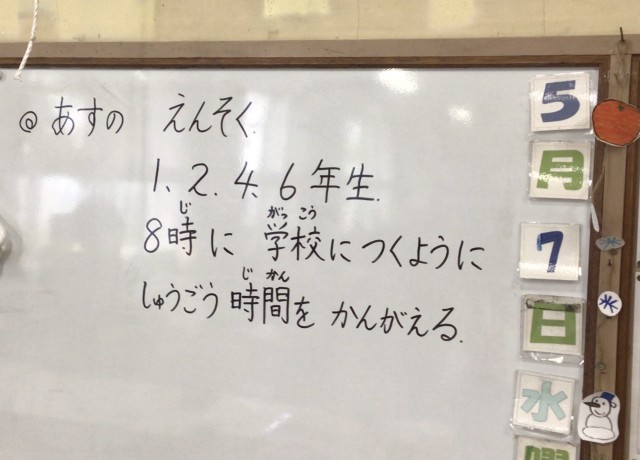 @ あすの えんそく.
1、2、4、6年生.
8時に 学校につくように
じ がっこう
しゅうごう時間を かんがえる.
じ かん
5
月
7
日
水
水
水